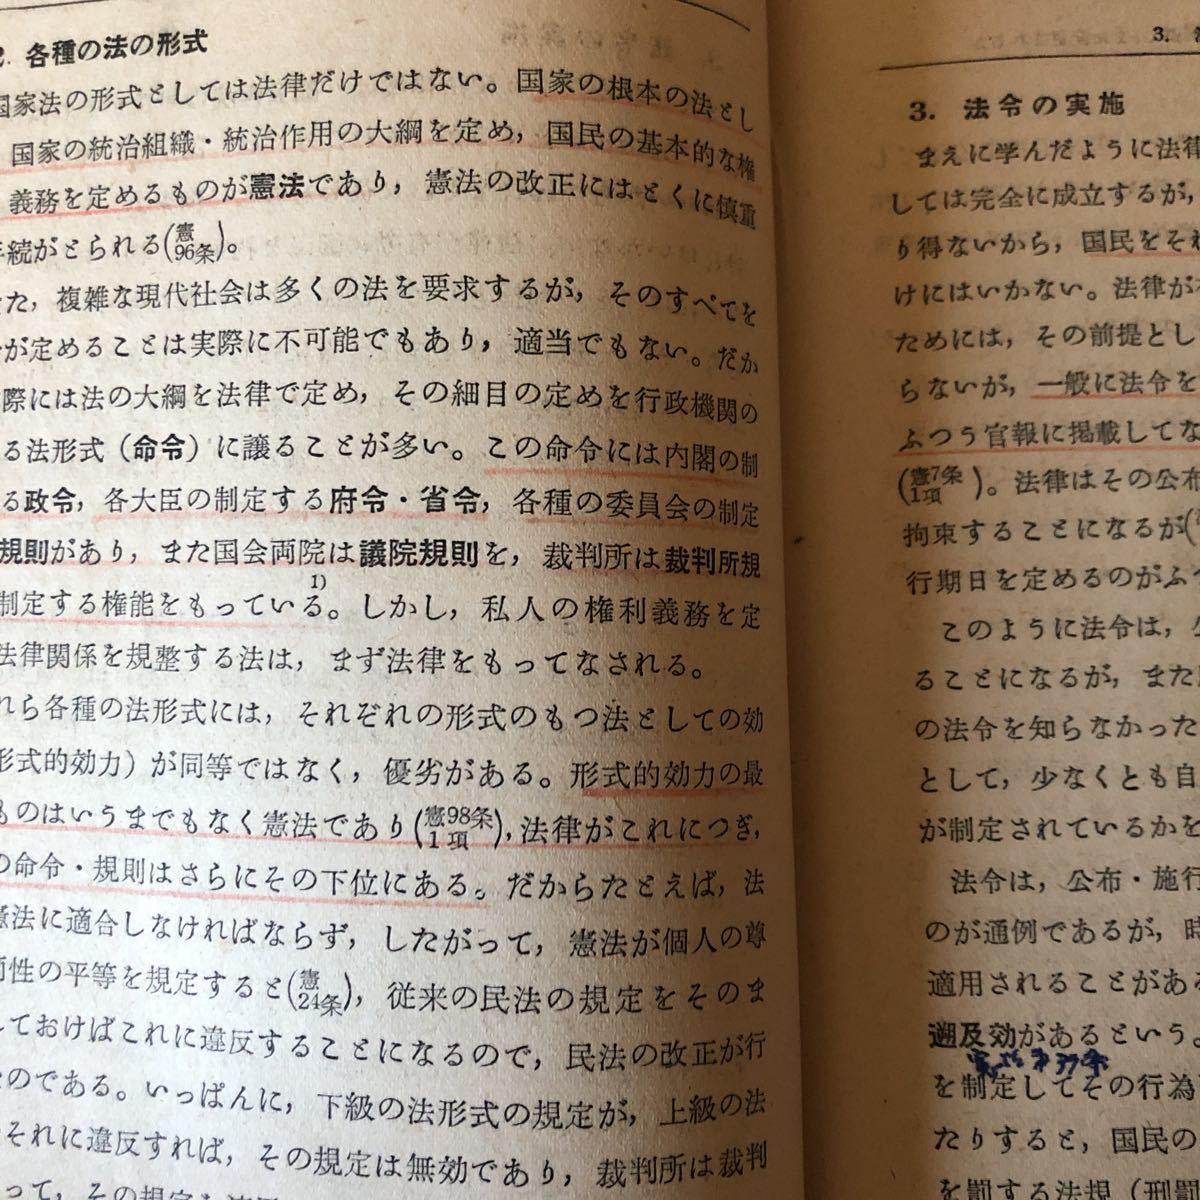 2. 各種の法の形式
国家法の形式としては法律だけではない。国家の根本の法とし
国家の統治組織・統治作用の大綱を定め，国民の基本的な権
義務を定めるものが憲法であり，憲法の改正にはとくに慎重
手続がとられる(憲96条)。
た，複雑な現代社会は多くの法を要求するが，そのすべてを
が定めることは実際に不可能でもあり，適当でもない。だか
際には法の大綱を法律で定め，その細目の定めを行政機関の
る法形式（命令）に譲ることが多い。この命令には内閣の制
る政令，各大臣の制定する府令・省令，各種の委員会の制定
規則があり，また国会両院は議院規則を，裁判所は裁判所規
制定する権能をもっている1)。しかし，私人の権利義務を定
法律関係を規整する法は，まず法律をもってなされる。
れら各種の法形式には，それぞれの形式のもつ法としての効
形式的効力）が同等ではなく，優劣がある。形式的効力の最
ものはいうまでもなく憲法であり(憲98条1項)，法律がこれにつぎ，
の命令・規則はさらにその下位にある。だからたとえば，法
憲法に適合しなければならず，したがって，憲法が個人の尊
両性の平等を規定すると(憲24条)，従来の民法の規定をそのま
しておけばこれに違反することになるので，民法の改正が行
のである。いっぱんに，下級の法形式の規定が，上級の法
それに違反すれば，その規定は無効であり，裁判所は裁判
って，その規定を
3.
3. 法令の実施
まえに学んだように法律
しては完全に成立するが，
り得ないから，国民をそれ
けにはいかない。法律が
ためには，その前提とし
らないが，一般に法令を
ふつう官報に掲載してな
(憲7条1項)。法律はその公布
拘束することになるが(
行期日を定めるのがふつ
このように法令は，公
ることになるが，また
の法令を知らなかった
として，少なくとも自
が制定されているかを
法令は，公布・施行
のが通例であるが，時
適用されることがある
遡及効があるという。
を制定してその行為
たりすると，国民の
を罰する法規（刑罰